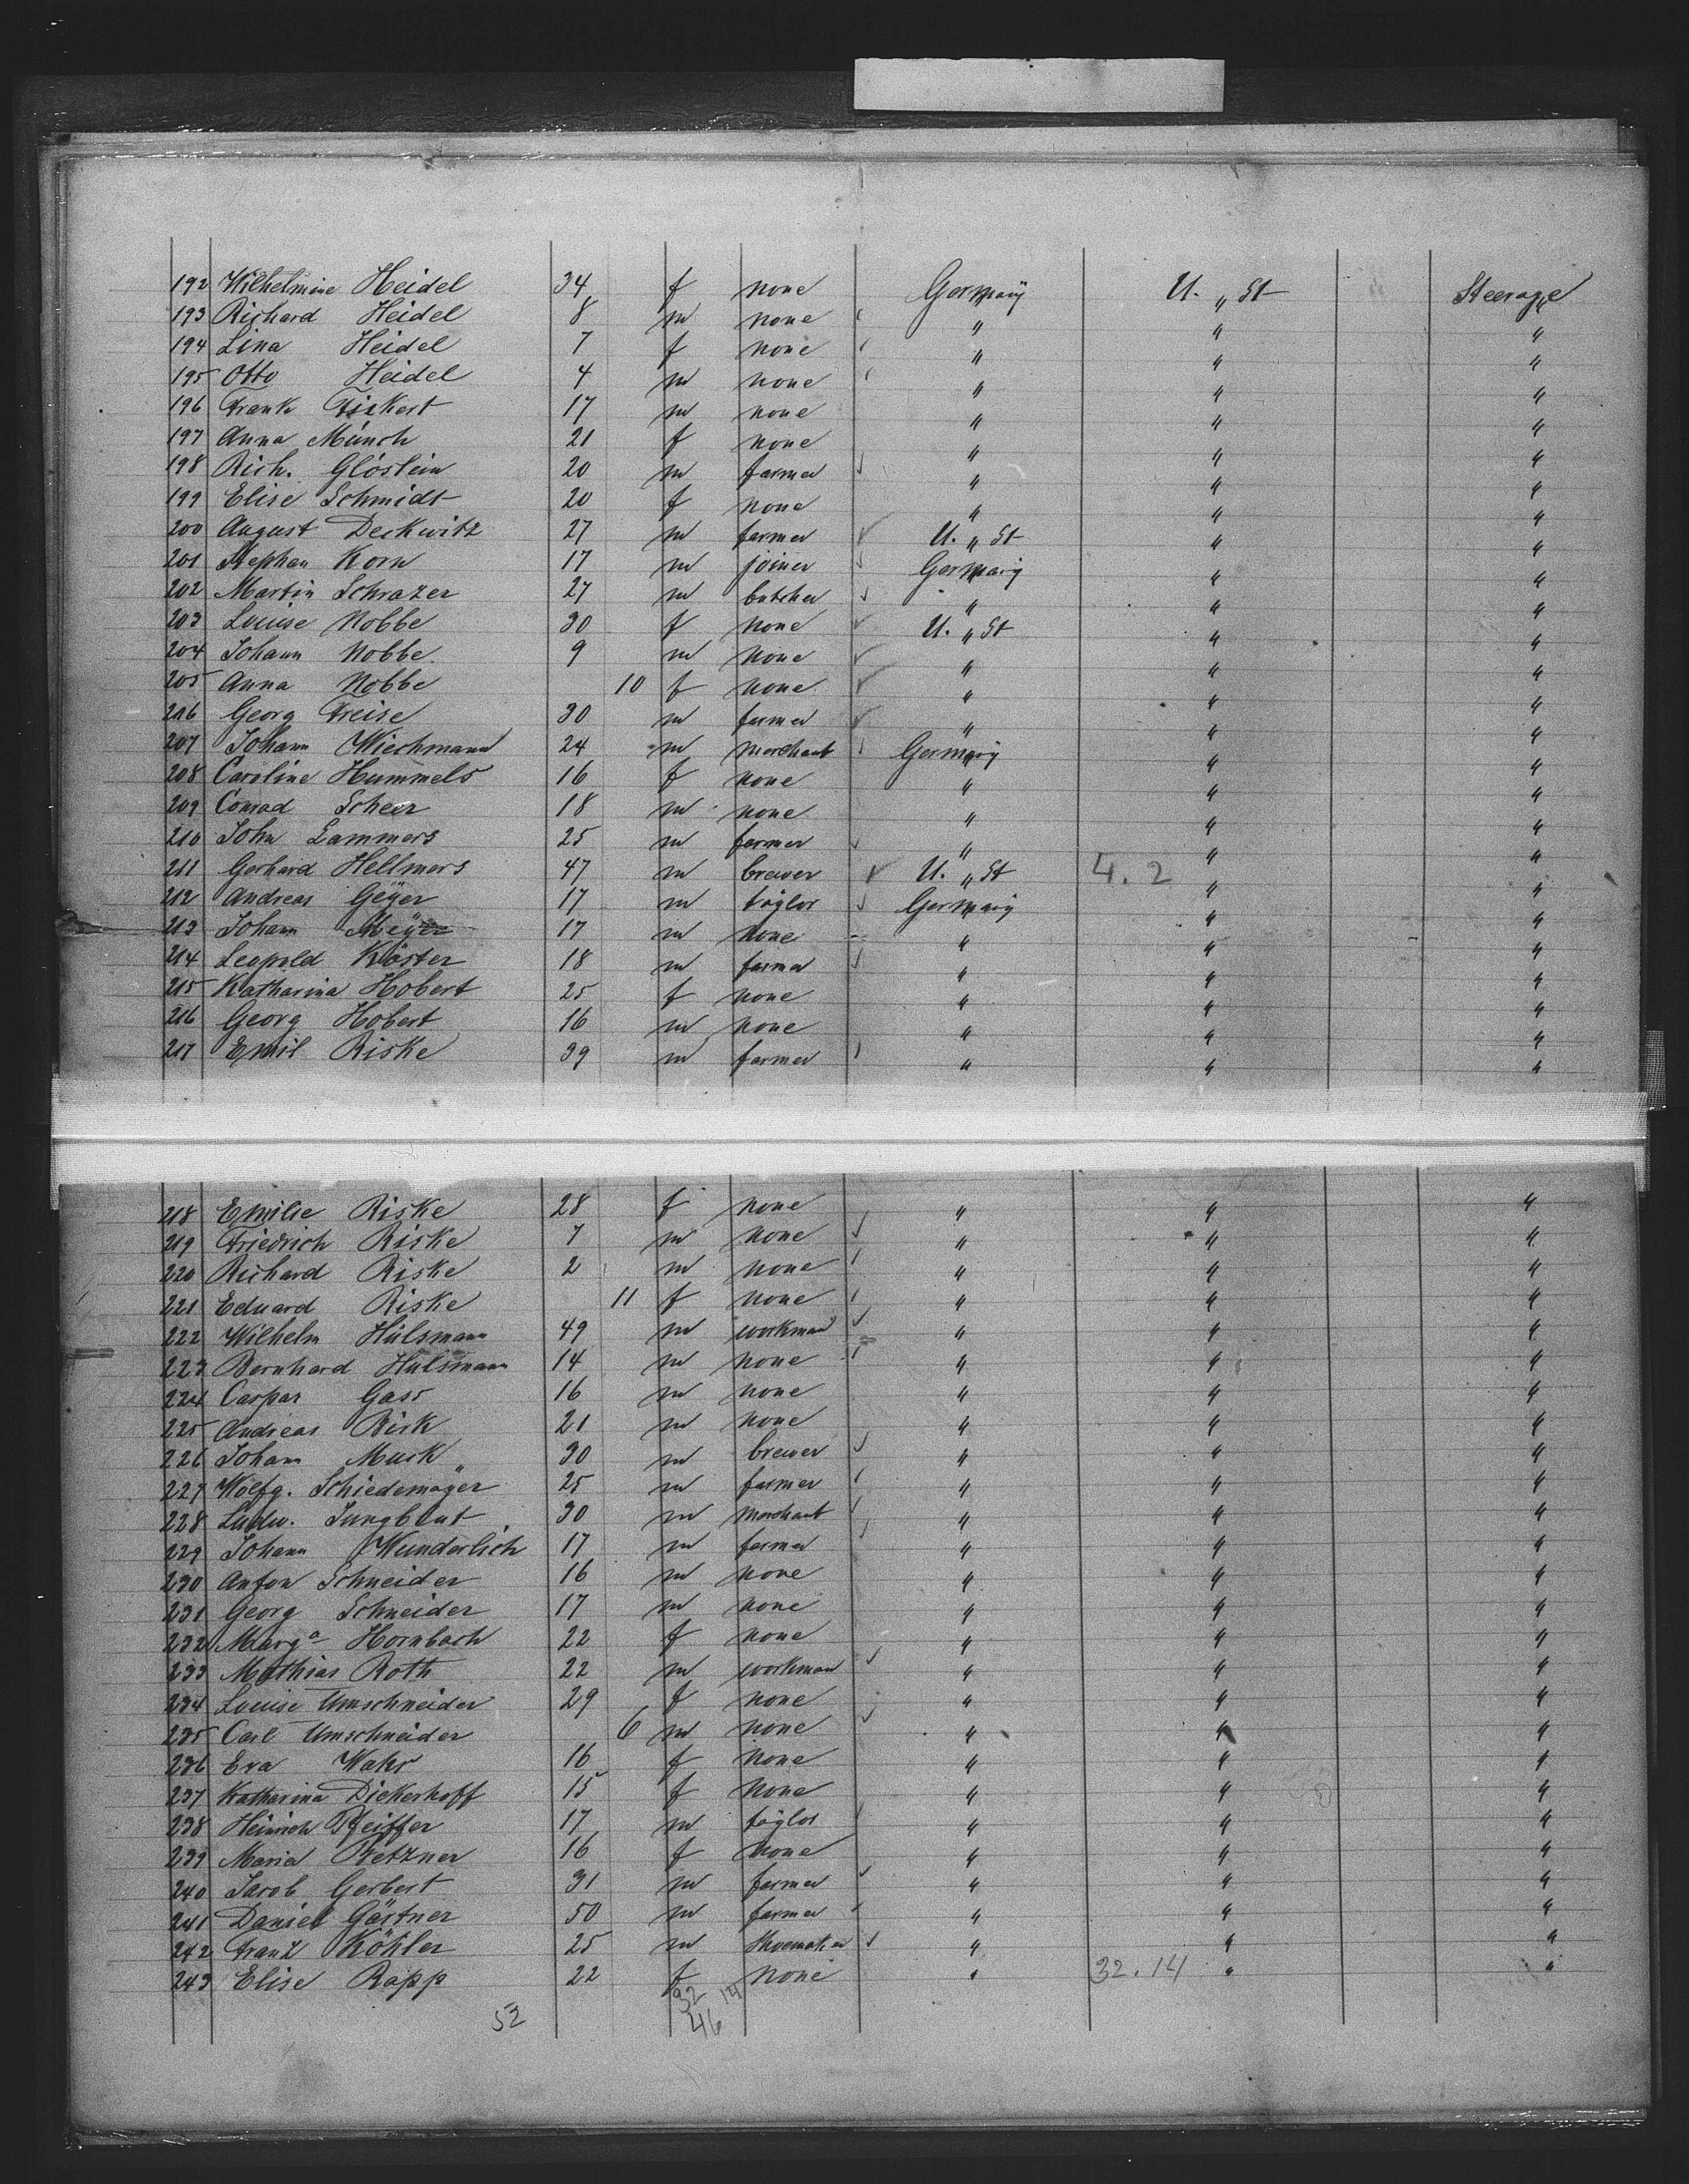 192 Wilhelmine Heidel 34 f none Germaÿ U. " St Steerage
193 Richard Heidel 8 m none " " "
194 Lina Heidel 7 f none " " "
195 Otto Heidel 4 m none " " "
196 Frank 17 m none " " "
197 Anna Münch 21 f none " " "
198 Rich. Glöslein 20 m farmer " " "
199 Elise Schmidt 20 f none " " "
200 August Deckwitz 27 m farmer U. " St " "
201 Stephan Korn 17 m joiner Germaÿ " "
202 Martin Schrazer 27 m butcher " " "
203 Louise Nobbe 30 f none U. " St " "
204 Johann Nobbe 9 m none " " "
205 Anna Nobbe 10 f none " " "
206 Georg Freise 30 m farmer " " "
207 Johann Wiechmann 24 m merchant Germaÿ " "
208 Caroline Hummels 16 f none " " "
209 Conrad Scheer 18 m none " " "
210 John Lammers 25 m farmer " " "
211 Gerhard Hellmers 47 m brewer U. " St 4.2 " "
212 Andreas Geÿer 17 m taÿlor Germaÿ " "
213 Johann Meÿer 17 m none " " "
214 Leopold Köster 18 m farmer " " "
215 Katharina Hobert 25 f none " " "
216 Georg Hobert 16 m none " " "
217 Emil Riske 39 m farmer " " "
218 Emilie Riske 28 f none " " "
219 Friedrich Riske 7 m none " " "
220 Richard Riske 2 m none " " "
221 Eduard Riske 11 f none " " "
222 Wilhelm Hülsmann 49 m workman " " "
223 Bernhard Hülsmann 14 m none " " "
224 Caspar Gass 16 m none " " "
225 Andreas 21 m none " " "
226 Johann Muck 30 m brewer " " "
227 Wolfg. Schiedemaÿer 25 m farmer " " "
228 Ludw. Jungblut 30 m merchant " " "
229 Johann Wunderlich 17 m farmer " " "
230 Anton Schneider 16 m none " " "
231 Georg Schneider 17 m none " " "
232 Marga Hornbach 22 f none " " "
233 Mathias Roth 22 m workman " " "
234 Louise Umschneider 29 f none " " "
235 Carl Umschneider 6 m none " " "
236 Eva 16 f none " " "
237 Katharina Dickerhoff 15 f none " " "
238 Heinrich Pfeiffer 17 m taÿlor " " "
239 Maria Betzner 16 f none " " "
240 Jacob Gerbert 31 m farmer " " "
241 Daniel Gärtner 50 m farmer " " "
242 Franz Köhler 25 m Shoemaker " " "
243 Elise Rapp 22 f none " 32.14 " "
32 14
52 46